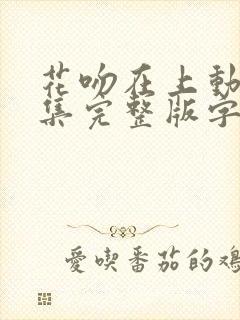 花吻在上動
集完整版字
愛喫番茄的雞